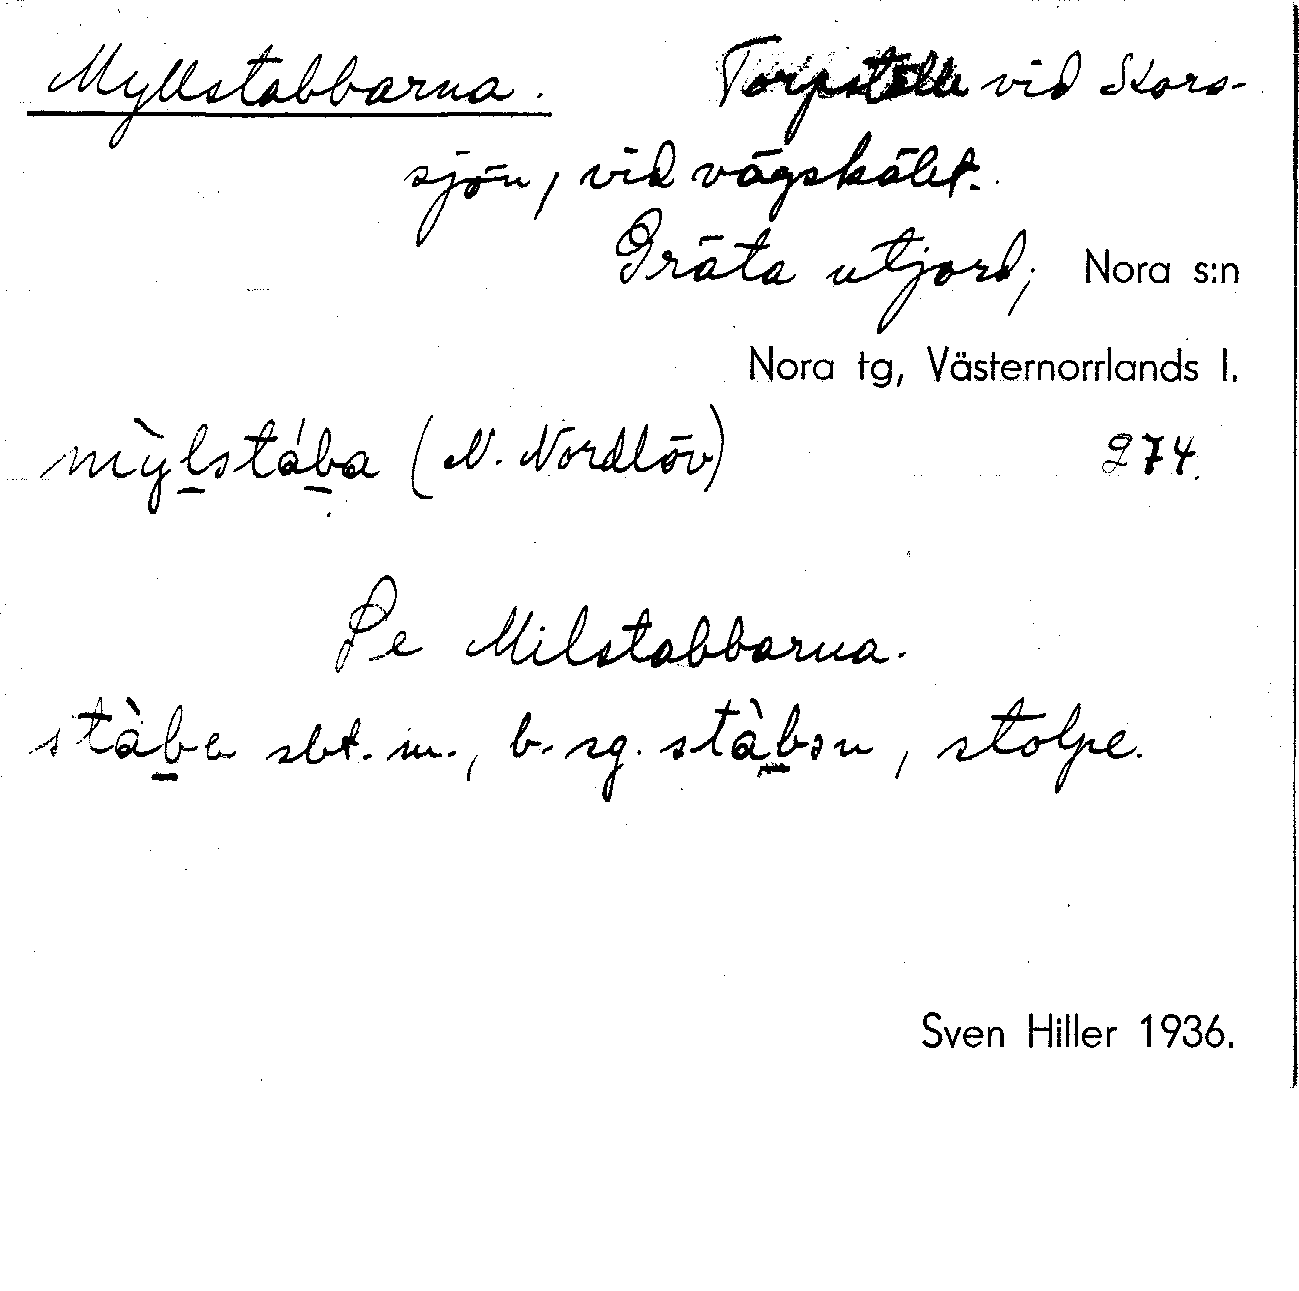 Myllstabbarna. Torpställe vid Skors-
sjön, vid vägskälet.
Gräta utjord, Nora s:n
Nora tg, Västernorrlands l.
mỳlstába (N. Nordlöv) 274.
Se Milstabbarna.
stàbe sbt. m., b. sg. stàbən, stolpe.
Sven Hiller 1936.